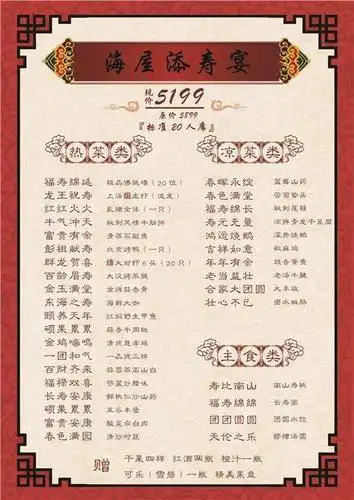 海屋添寿宴
现价5199
原价5899
『标准20人席』
热菜类
福寿绵延 极品佛跳墙(20位)
龙王祝寿 上汤焗龙虾(波龙)
红红火火 乳猪全体(一只)
牛气冲天
富贵有余 清蒸石斑鱼
彭祖献寿 北京烤鸭(一只)
群龙贺喜
百龄眉寿 大汉烤羊腿
金玉满堂 金牌蒜香骨
东海之寿 海鲜大咖
颐养天年 红焖野生甲鱼
硕果累累
金鸡啼鸣
一团和气 一品烧三样
百财齐来
福禄双喜
长寿安康 鲜桃仁炒山药
硕果累累 五谷丰登
富贵安康
春色满园 清炒时蔬
凉菜类
春晖永绽 蓝莓山药
春色满堂
福寿绵长
寿元无量
鸿运烧鹅 深井烧鹅
吉祥如意 椒麻鸡
年年有余 豉香黄鱼
老当益壮 老汤牛腱
合家大团圆 大丰收
壮心不已
主食类
寿比南山 南山寿桃
福寿绵绵 长寿面
团团圆圆 团圆水饺
天伦之乐 醪糟汤圆
赠 干果四样 红酒两瓶 橙汁一瓶
可乐(雪碧)一瓶 精美果盘